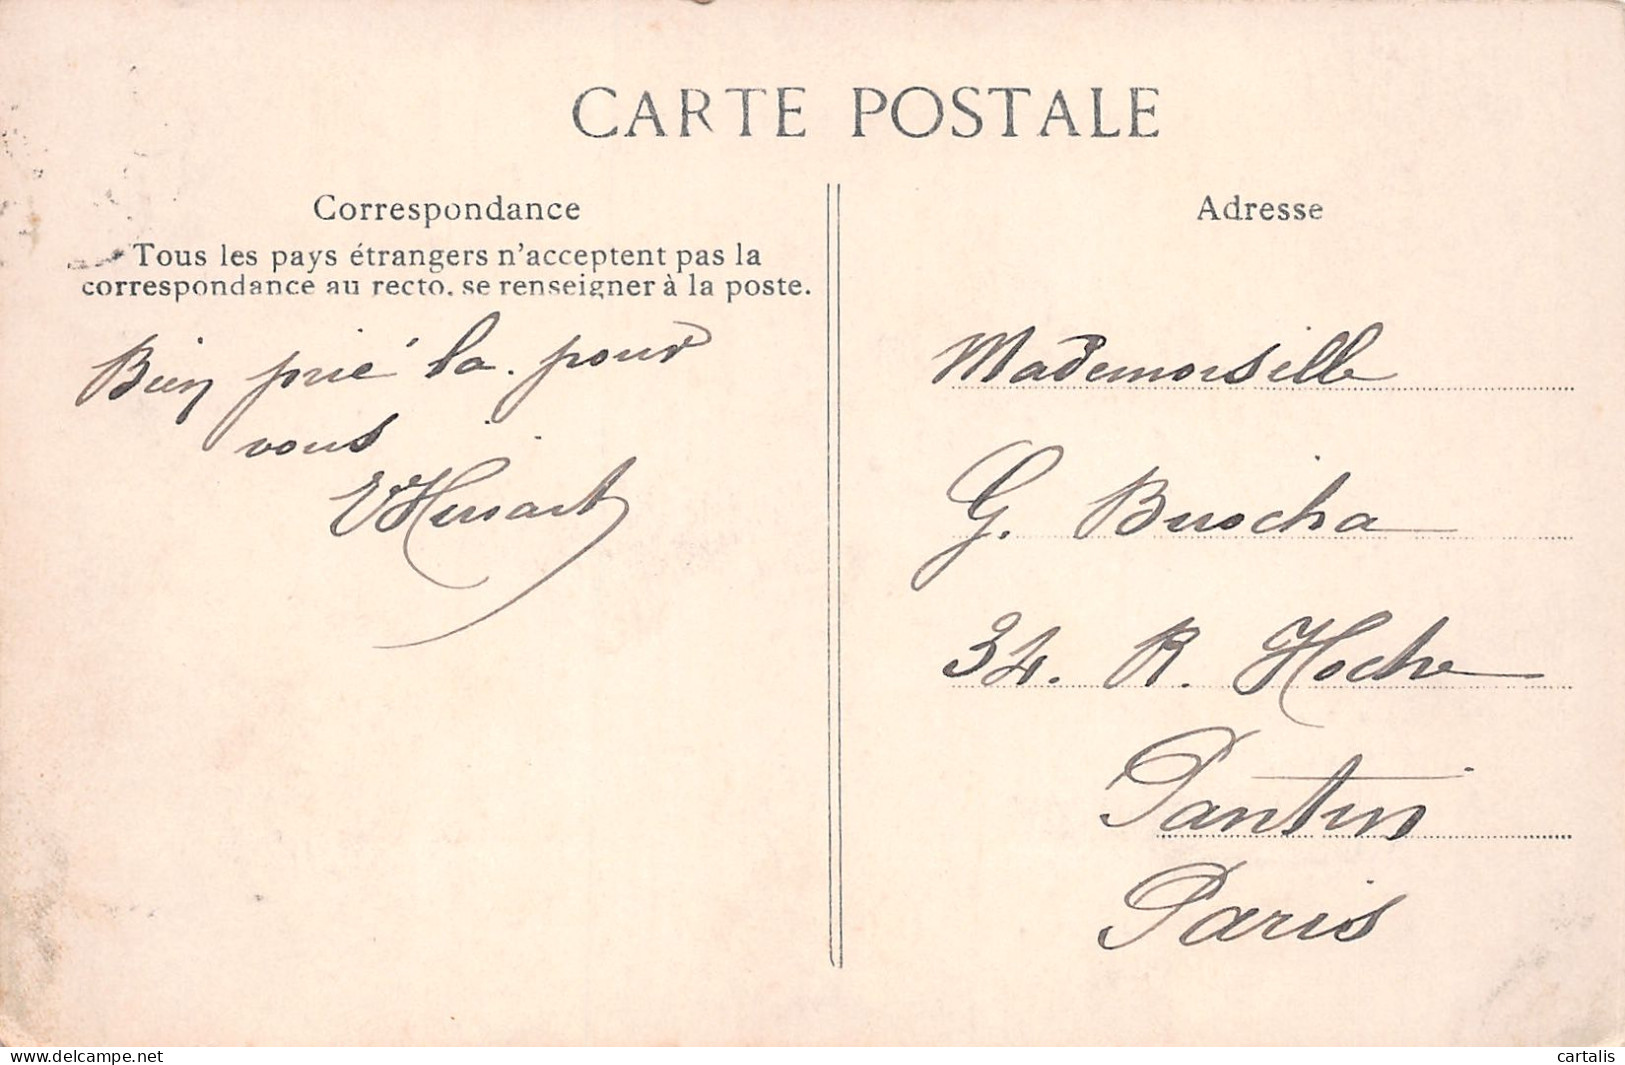 CARTE POSTALE
Correspondance
Tous les pays étrangers n'acceptent pas la
correspondance au recto, se renseigner à la poste.
Bien prié la. pour
vous
Adresse
Mademoiselle
G. Buocha
34. R. Hoche
Pantin
Paris
www.delcampe.net
cartalis